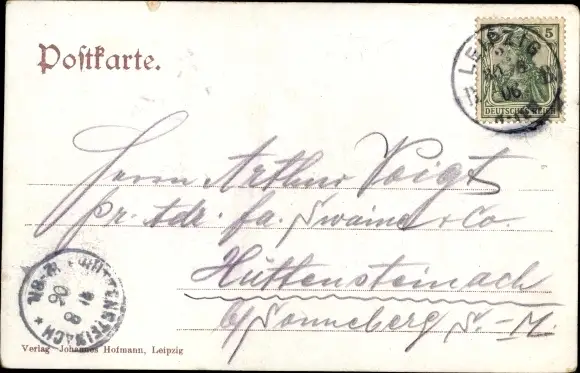 Postkarte.
5
LEIPZIG
06
DEUTSCHES REICH
Herrn Arthur Voigt
pr. Adr. fa. Swaine & Co.
Hüttensteinach
b/ Sonneberg S.-M.
HÜTTENSTEINACH
8
06
Verlag Johannes Hofmann, Leipzig